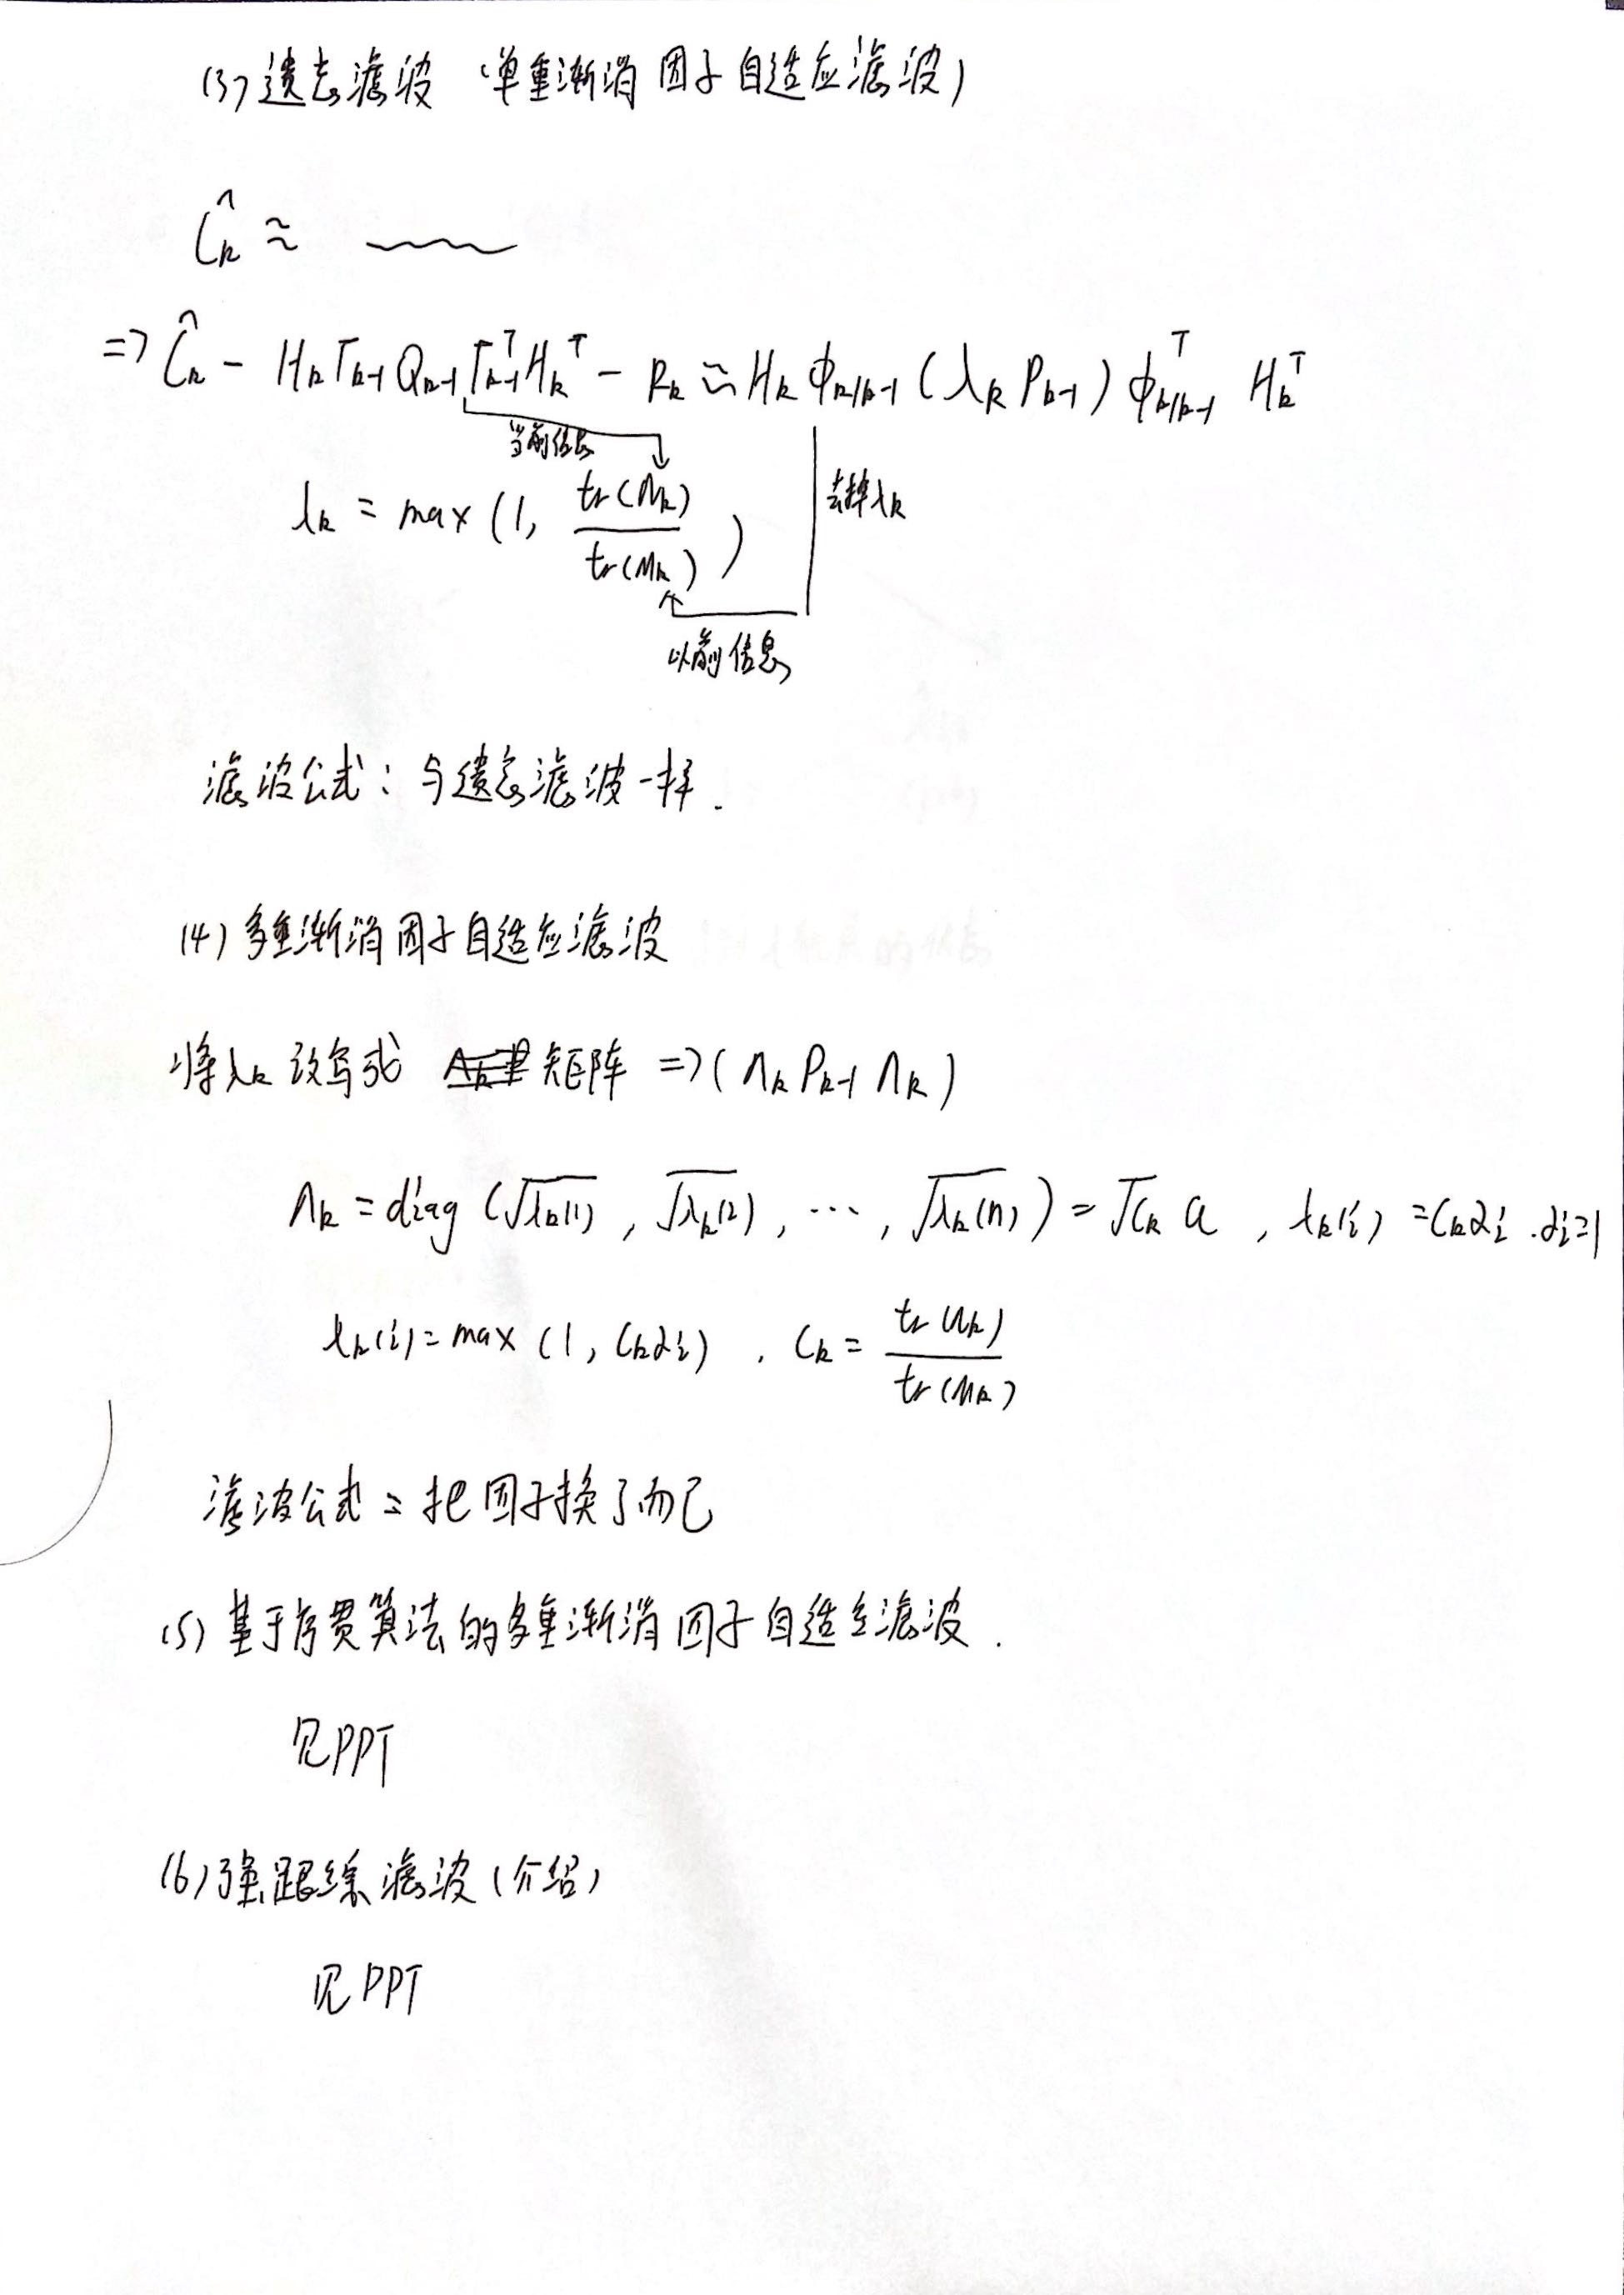 (3) 遗忘滤波 (单重渐消因子自适应滤波)
Ĉk ≈ ~~~
=> Ĉk - HkΓk-1Qk-1Γk-1^T Hk^T - Rk ≈ Hk Φk/k-1 (λk Pk-1) Φk/k-1^T Hk^T
当前信息
λk = max (1, tr(Nk) / tr(Mk))
去掉λk
以前信息
滤波公式: 与遗忘滤波一样.
(4) 多重渐消因子自适应滤波
将λk 改写成 矩阵 => (Λk Pk-1 Λk)
Λk = diag (√λk(1), √λk(2), ..., √λk(n)) = √Ck a, λk(i) = Ck αi . αi=1
λk(i) = max (1, Ck αi) . Ck = tr(Nk) / tr(Mk)
滤波公式: 把因子换了而已
(5) 基于序贯算法的多重渐消因子自适应滤波.
见PPT
(6) 强跟综滤波 (介绍)
见PPT